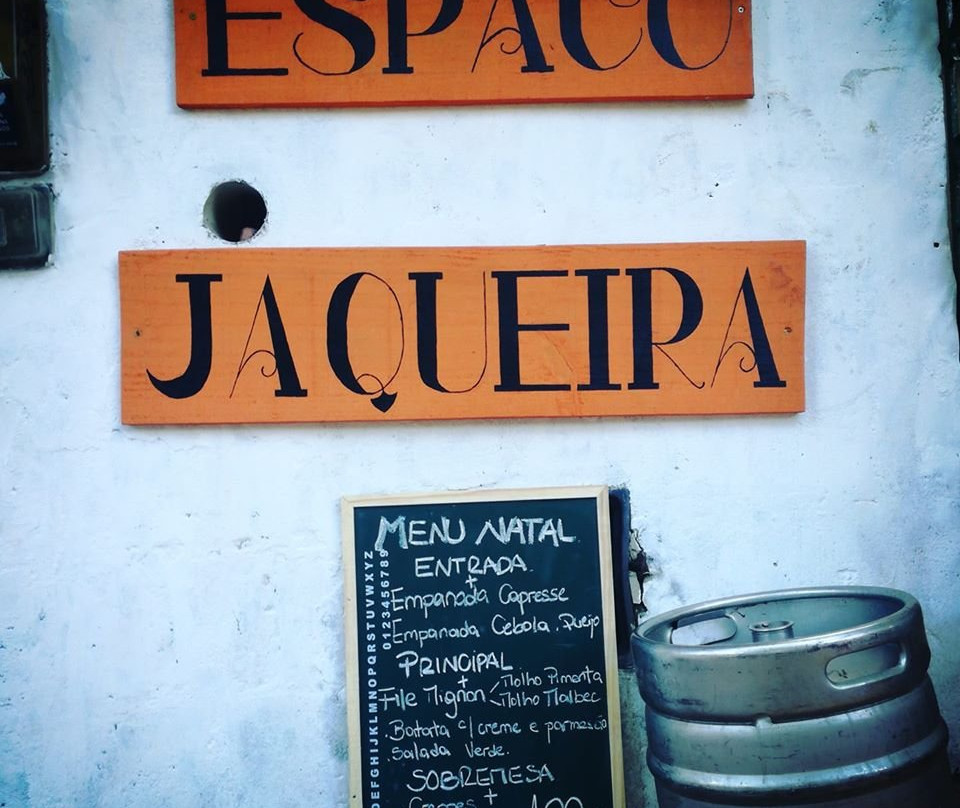 ESPAÇO
JAQUEIRA
MENU NATAL
ENTRADA
+
Empanada Capresse
Empanada Cebola. Queijo
PRINCIPAL
+
File Mignon < Molho Pimenta
Molho Malbec
.Batata c/ creme e parmesão
.Salada Verde.
SOBREMESA
+
100
DEFGHIJKLMNOPQRSTUVWXYZ
0123456789